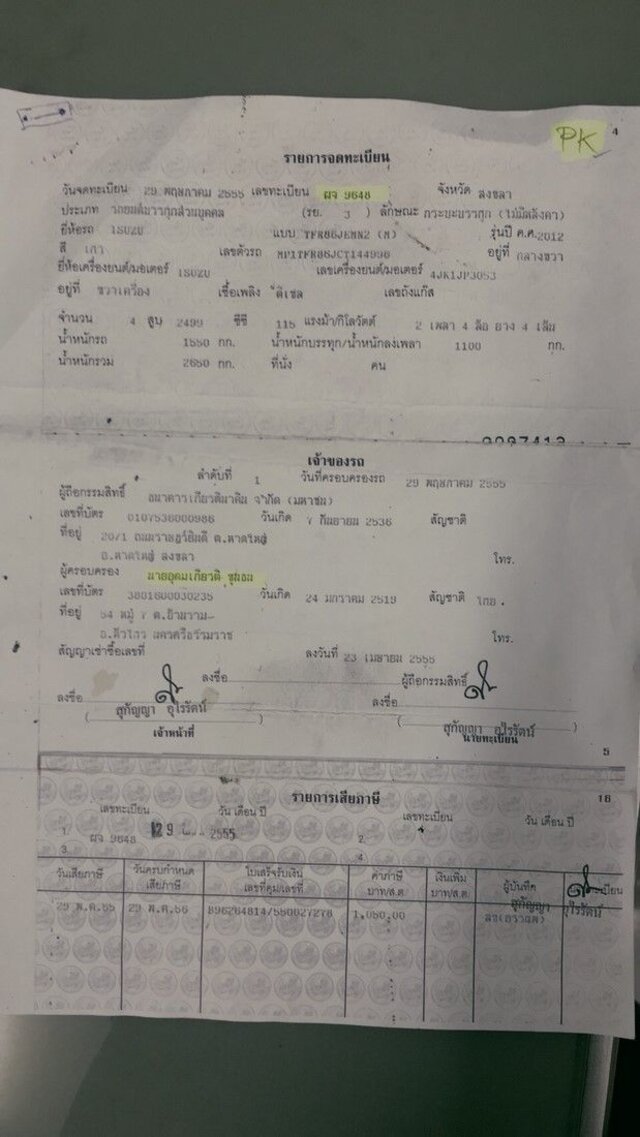 PK
4
รายการจดทะเบียน
วันจดทะเบียน 29 พฤษภาคม 2555 เลขทะเบียน ผจ 9648 จังหวัด สงขลา
ประเภท รถยนต์บรรทุกส่วนบุคคล (รย. 3 ) ลักษณะ กระบะบรรทุก (ไม่มีหลังคา)
ยี่ห้อรถ ISUZU แบบ TFR86JEMN2 (M) รุ่นปี ค.ศ.2012
สี เทา เลขตัวรถ MP1TFR86JCT144998 อยู่ที่ กลางขวา
ยี่ห้อเครื่องยนต์/มอเตอร์ ISUZU เลขเครื่องยนต์/มอเตอร์ 4JK1JP3053
อยู่ที่ ขวาเครื่อง เชื้อเพลิง ดีเซล เลขถังแก๊ส
จำนวน 4 สูบ 2499 ซีซี 115 แรงม้า/กิโลวัตต์ 2 เพลา 4 ล้อ ยาง 4 เส้น
น้ำหนักรถ 1550 กก. น้ำหนักบรรทุก/น้ำหนักลงเพลา 1100 กก.
น้ำหนักรวม 2650 กก. ที่นั่ง คน
เจ้าของรถ
ลำดับที่ 1 วันที่ครอบครองรถ 29 พฤษภาคม 2555
ผู้ถือกรรมสิทธิ์ ธนาคารเกียรตินาคิน จำกัด (มหาชน)
เลขที่บัตร 0107536000986 วันเกิด 7 กันยายน 2536 สัญชาติ
ที่อยู่ 20/1 ถนนราษฎร์ยินดี ต.หาดใหญ่
อ.หาดใหญ่ สงขลา โทร.
ผู้ครอบครอง นายอุดมเกียรติ
เลขที่บัตร 3801600030235 วันเกิด 24 มกราคม 2519 สัญชาติ ไทย
ที่อยู่ 54 หมู่ 7
อ.หัวไทร นครศรีธรรมราช โทร.
สัญญาเช่าซื้อเลขที่ ลงวันที่ 23 เมษายน 2555
ลงชื่อ ผู้ถือกรรมสิทธิ์
ลงชื่อ ลงชื่อ
สุกัญญา อุไรรัตน์ สุกัญญา อุไรรัตน์
เจ้าหน้าที่ นายทะเบียน
5
รายการเสียภาษี 16
เลขทะเบียน วัน เดือน ปี เลขทะเบียน วัน เดือน ปี
1. ผจ 9648 29 2555 2.
3. 4.
วันเสียภาษี วันครบกำหนดเสียภาษี ใบเสร็จรับเงินเลขที่คุม/เลขที่ ค่าภาษีบาท/ส.ต. เงินเพิ่มบาท/ส.ต. ผู้บันทึก
29 พ.ค.55 29 พ.ค.56 896264814/550027278 1,050.00 สุกัญญา อุไรรัตน์